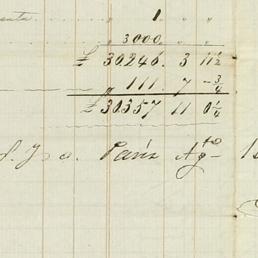 1. " "
3000. " "
£ 30246. 3 11½
" 111. 7 -¾
£ 30357 11 0¼
París Ag^to